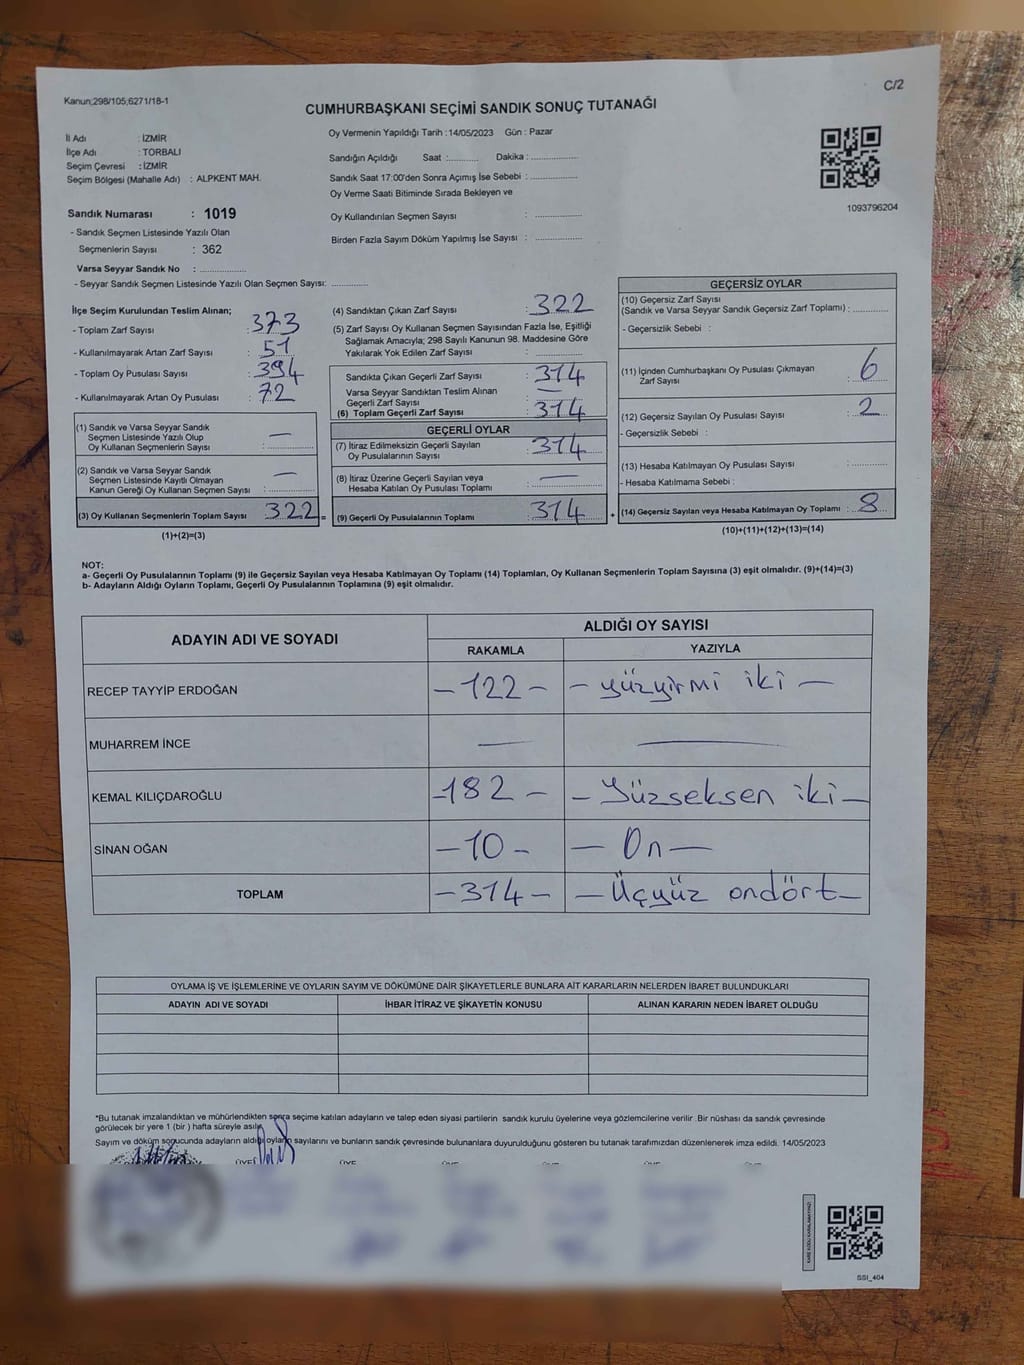 Kanun;298/105;6271/18-1
C/2
CUMHURBAŞKANI SEÇİMİ SANDIK SONUÇ TUTANAĞI
İl Adı : İZMİR
İlçe Adı : TORBALI
Seçim Çevresi : İZMİR
Seçim Bölgesi (Mahalle Adı) : ALPKENT MAH.
Sandık Numarası : 1019
- Sandık Seçmen Listesinde Yazılı Olan
Seçmenlerin Sayısı : 362
Varsa Seyyar Sandık No : ..............
- Seyyar Sandık Seçmen Listesinde Yazılı Olan Seçmen Sayısı: ............
Oy Vermenin Yapıldığı Tarih : 14/05/2023 Gün : Pazar
Sandığın Açıldığı Saat :.......... Dakika : ..............
Sandık Saat 17:00'den Sonra Açımış İse Sebebi : ..............
Oy Verme Saati Bitiminde Sırada Bekleyen ve
Oy Kullandırılan Seçmen Sayısı : ..............
Birden Fazla Sayım Döküm Yapılmış İse Sayısı : ..............
1093796204
İlçe Seçim Kurulundan Teslim Alınan;
- Toplam Zarf Sayısı : 373
- Kullanılmayarak Artan Zarf Sayısı : 51
- Toplam Oy Pusulası Sayısı : 394
- Kullanılmayarak Artan Oy Pusulası : 72
(1) Sandık ve Varsa Seyyar Sandık
Seçmen Listesinde Yazılı Olup
Oy Kullanan Seçmenlerin Sayısı : —
(2) Sandık ve Varsa Seyyar Sandık
Seçmen Listesinde Kayıtlı Olmayan
Kanun Gereği Oy Kullanan Seçmen Sayısı : —
(3) Oy Kullanan Seçmenlerin Toplam Sayısı : 322 =
(1)+(2)=(3)
(4) Sandıktan Çıkan Zarf Sayısı : 322
(5) Zarf Sayısı Oy Kullanan Seçmen Sayısından Fazla İse, Eşitliği
Sağlamak Amacıyla; 298 Sayılı Kanunun 98. Maddesine Göre
Yakılarak Yok Edilen Zarf Sayısı : ..............
Sandıkta Çıkan Geçerli Zarf Sayısı : 314
Varsa Seyyar Sandıktan Teslim Alınan
Geçerli Zarf Sayısı : —
(6) Toplam Geçerli Zarf Sayısı : 314
GEÇERLİ OYLAR
(7) İtiraz Edilmeksizin Geçerli Sayılan
Oy Pusulalarının Sayısı : 314
(8) İtiraz Üzerine Geçerli Sayılan veya
Hesaba Katılan Oy Pusulası Toplamı : —
(9) Geçerli Oy Pusulalarının Toplamı : 314 +
GEÇERSİZ OYLAR
(10) Geçersiz Zarf Sayısı
(Sandık ve Varsa Seyyar Sandık Geçersiz Zarf Toplamı) : ............
- Geçersizlik Sebebi :
(11) İçinden Cumhurbaşkanı Oy Pusulası Çıkmayan
Zarf Sayısı : 6
(12) Geçersiz Sayılan Oy Pusulası Sayısı : 2
- Geçersizlik Sebebi :
(13) Hesaba Katılmayan Oy Pusulası Sayısı : ............
- Hesaba Katılmama Sebebi :
(14) Geçersiz Sayılan veya Hesaba Katılmayan Oy Toplamı : 8
(10)+(11)+(12)+(13)=(14)
NOT:
a- Geçerli Oy Pusulalarının Toplamı (9) ile Geçersiz Sayılan veya Hesaba Katılmayan Oy Toplamı (14) Toplamları, Oy Kullanan Seçmenlerin Toplam Sayısına (3) eşit olmalıdır. (9)+(14)=(3)
b- Adayların Aldığı Oyların Toplamı, Geçerli Oy Pusulalarının Toplamına (9) eşit olmalıdır.
ADAYIN ADI VE SOYADI ALDIĞI OY SAYISI
RAKAMLA YAZIYLA
RECEP TAYYİP ERDOĞAN – 122 – – yüzyirmi iki –
MUHARREM İNCE — —
KEMAL KILIÇDAROĞLU – 182 – – Yüzseksen iki –
SİNAN OĞAN – 10 – – On –
TOPLAM – 314 – – Üçyüz ondört –
OYLAMA İŞ VE İŞLEMLERİNE VE OYLARIN SAYIM VE DÖKÜMÜNE DAİR ŞİKAYETLERLE BUNLARA AİT KARARLARIN NELERDEN İBARET BULUNDUKLARI
ADAYIN ADI VE SOYADI İHBAR İTİRAZ VE ŞİKAYETİN KONUSU ALINAN KARARIN NEDEN İBARET OLDUĞU
*Bu tutanak imzalandıktan ve mühürlendikten sonra seçime katılan adayların ve talep eden siyasi partilerin sandık kurulu üyelerine veya gözlemcilerine verilir. Bir nüshası da sandık çevresinde
görülecek bir yere 1 (bir) hafta süreyle asılır.
Sayım ve döküm sonucunda adayların aldığı oyların sayılarını ve bunların sandık çevresinde bulunanlara duyurulduğunu gösteren bu tutanak tarafımızdan düzenlenerek imza edildi. 14/05/2023
SSI_404